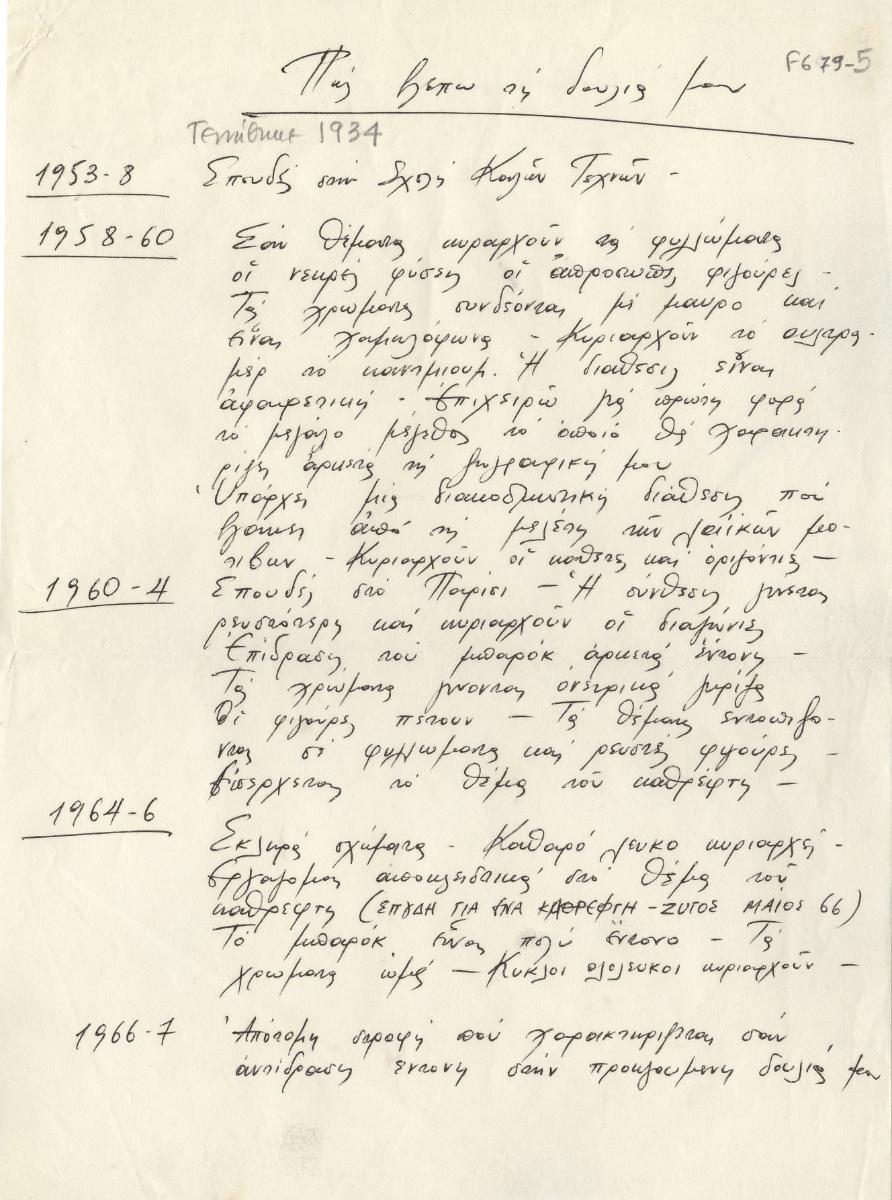 F679-5
Πώς βλέπω τή δουλιά μου
Γεννήθηκε 1934
1953-8 Σπουδές στήν Σχολή Καλῶν Τεχνῶν -
1958-60 Σάν θέματα κυριαρχοῦν τά φυλλώματα
οἱ νεκρές φύσεις οἱ ἀπρόσωπες φιγοῦρες -
Τά χρώματα συνδέονται μέ μαυρο καί
εἶναι χαμηλόφωνα - Κυριαρχοῦν τό ουλτρα-
μέρ τό καντμιουμ. Ἡ διαθεσις εἶναι
ἀφαιρετική - Ἐπιχειρῶ γιά πρώτη φορά
τό μεγάλο μέγεθος τό ὁποιό θά χαρακτη-
ρίζει ἀρκετά τή ζωγραφική μου
Ὑπάρχει μία διακοσμητική διάθεση πού
βγαίνει ἀπό τή μελέτη τῶν λαϊκῶν μο-
τιβων - Κυριαρχοῦν οἱ καθετες καί ὁριζόντιες —
1960-4 Σπουδές στό Παρίσι — Ἡ σύνθεσις γίνεται
ρευστότερη καί κυριαρχοῦν οἱ διαγώνιες
Ἐπίδραση τοῦ μπαρόκ ἀρκετά ἔντονη -
Τά χρώματα γινονται ονειρικά γκρίζα
Οἱ φιγοῦρες πετουν — Τά θέματα εντοπιζο-
νται σέ φυλλωματα καί ρευστές φιγοῦρες -
Εἰσερχεται τό θέμα τοῦ καθρέφτη —
1964-6
Σκληρά σχήματα - Καθαρό λευκο κυριαρχεῖ -
Εργαζομαι αποκλειστικά στό θέμα τοῦ
καθρεφτη (ΣΠΥΔΗ ΓΙΑ ΕΝΑ ΚΑΘΡΕΦΤΗ - ΖΥΓΟΣ ΜΑΙΟΣ 66)
Τό μπαρόκ εἶναι πολύ ἔντονο - Τά
χρωματα ὠμά — Κυκλοι ολολευκοι κυριαρχοῦν —
1966-7 Ἀπότομη στροφή πού χαρακτηριζεται σάν
ἀντίδραση εντονη στήν προηγουμενη δουλιά μου